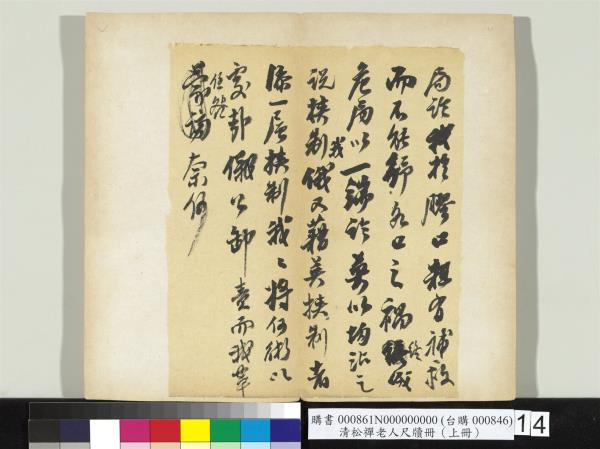 局論我於膠口粗有補救
而不能紓旅口之禍終成
危局以一論英以均沾之
說挾制我俄又藉英挾制者
添一層挾制我々將何術以
處卸責而我輩
任怨蒙詬奈何
購書 000861N000000000 (台購 000846)
清松禪老人尺牘冊（上冊）
14